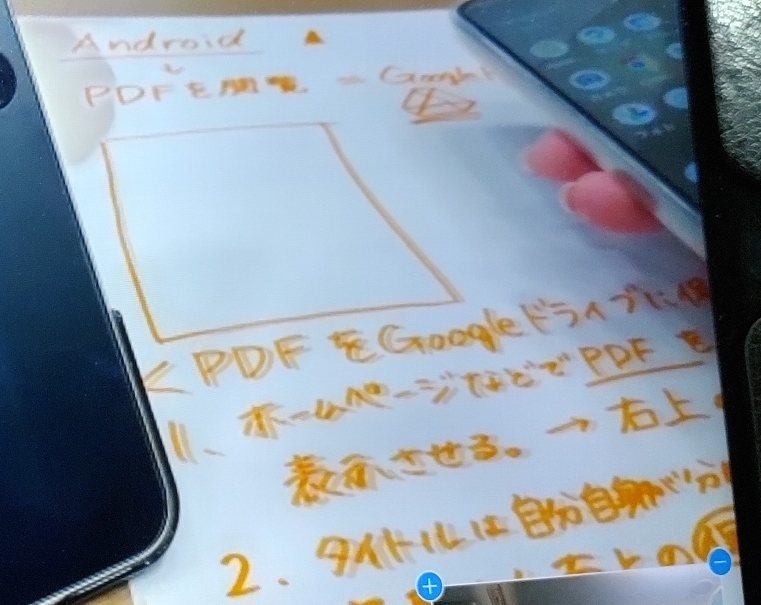 Android ▲
PDFを閲覧 = Google
< PDFをGoogleドライブに保
1、ホームページなどでPDFを
表示させる。→ 右上
2、タイトルは自分自身が分
右上の